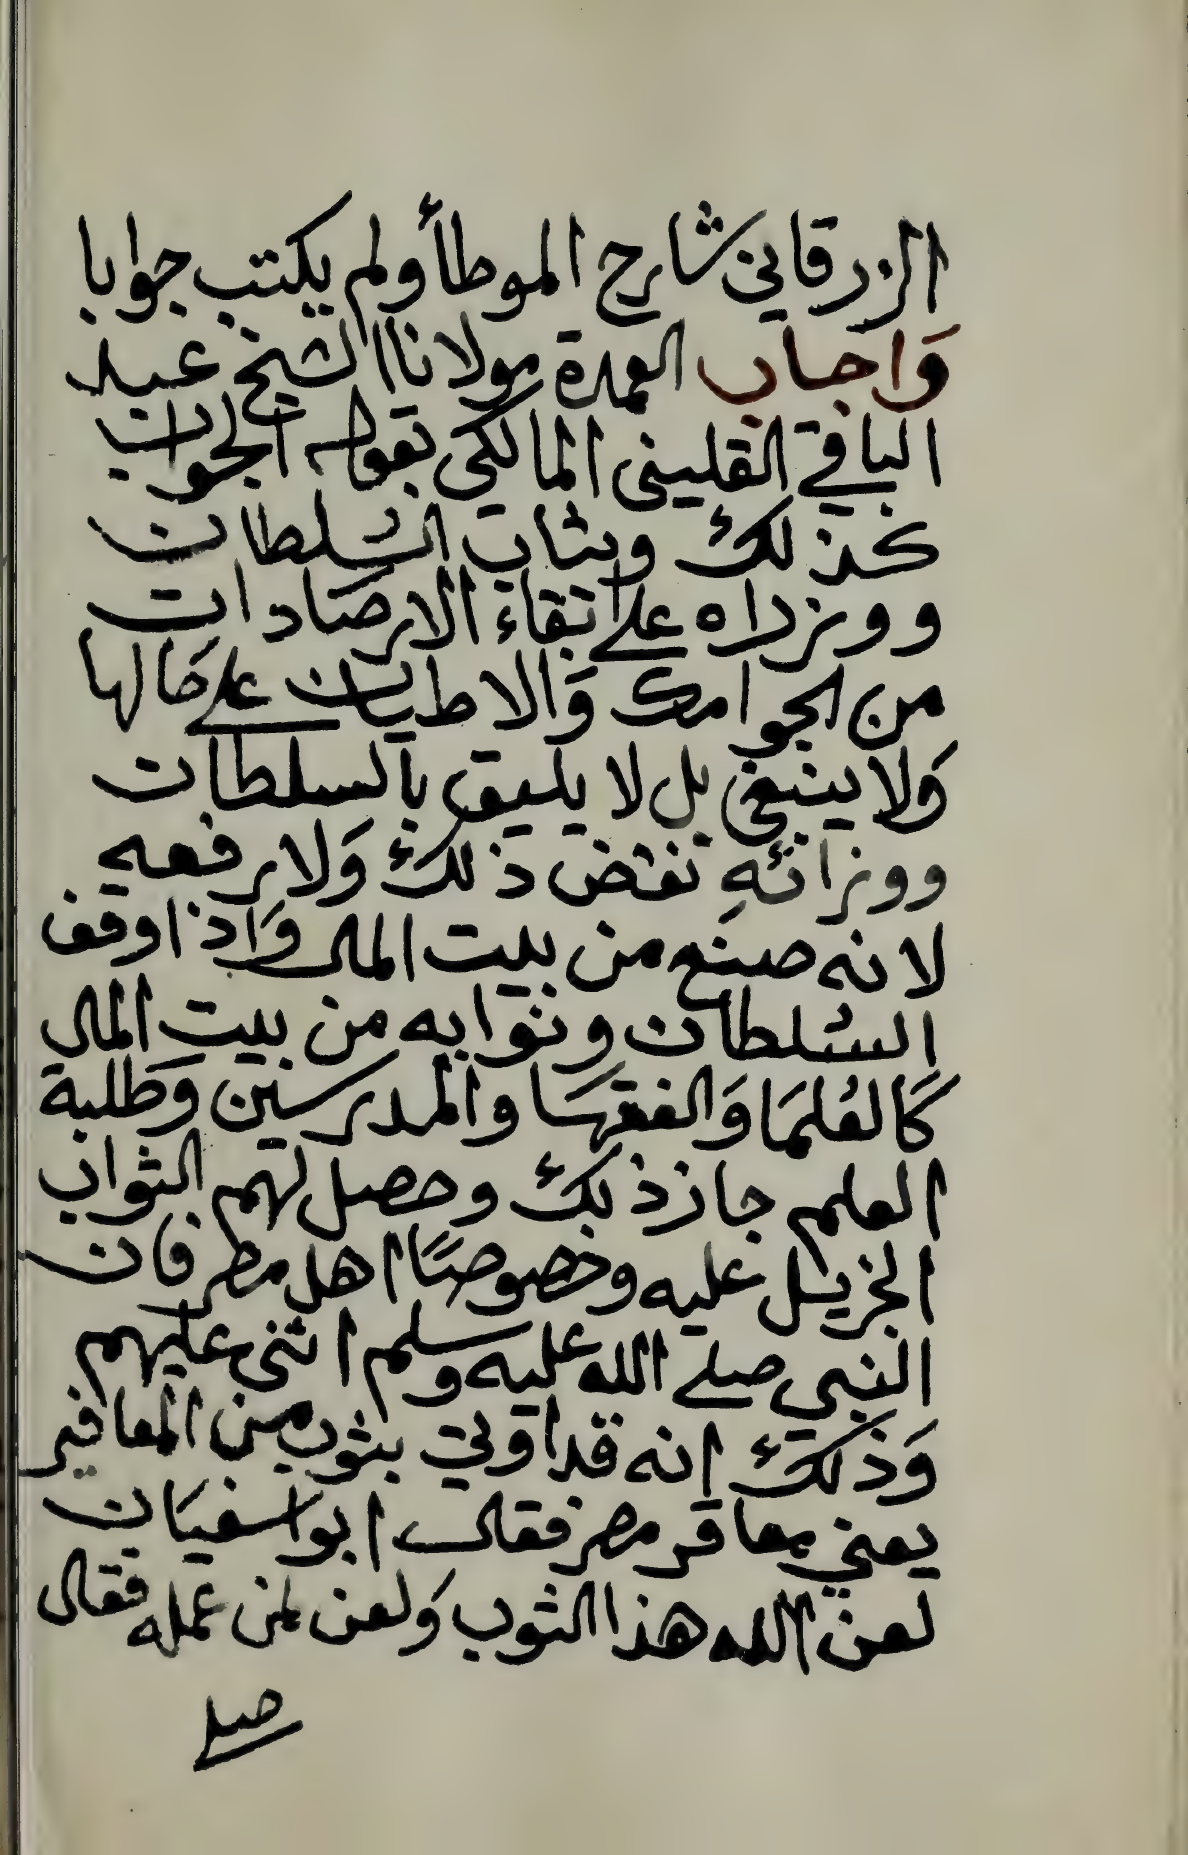 الزرقاني شارح الموطأ ولم يكتب جوابا
وَاجاب العمدة مولانا الشيخ عبد
الباقي القليني المالكي بقوله الجواب
كذلك ويثاب السلطان
ووزراه على ابقاء الارصادات
من الجوامك وَالاطيان على حَالها
وَلا ينبغي بل لا يليق بالسلطان
ووزرائه نقض ذلك وَلا رفعه
لانه صنع من بيت المال وَاذا وقف
السلطان ونوابه من بيت المال
كَالعُلمَا وَالفقهَا والمدرسين وَطلبة
العلم جاز ذلك وحصل لهم الثواب
الجزيل عليه وخصوصًا اهل مصر فان
النبي صلى الله عليه وسلم اثنى عليهم
وَذلك انه قد اوتي بثوب من المعافير
يعني معافر مصر فقال ابوا سفيان
لعن الله هذا الثوب وَلعن لمن عمله فقال
صلى